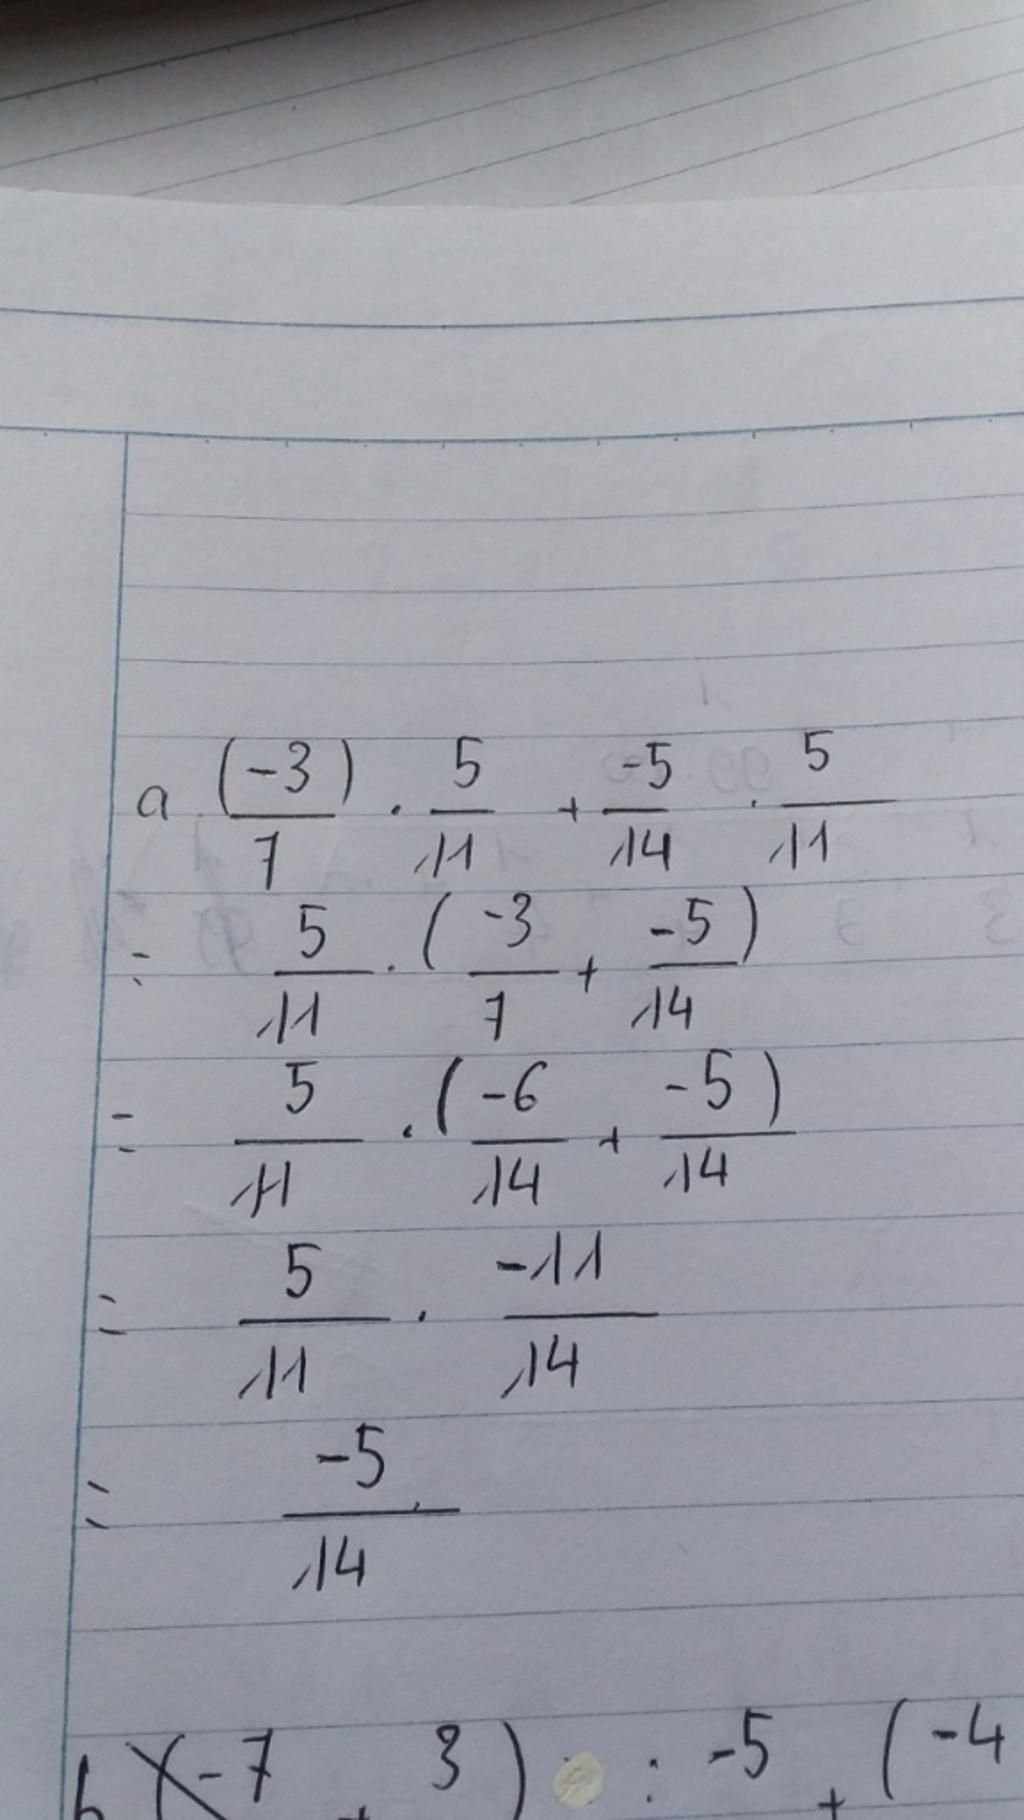 a (-3)/7 . 5/11 + -5/14 . 5/11
= 5/11 . (-3/7 + -5/14)
= 5/11 . (-6/14 + -5/14)
= 5/11 . -11/14
= -5/14
b (-7 + 3) : -5 + (-4